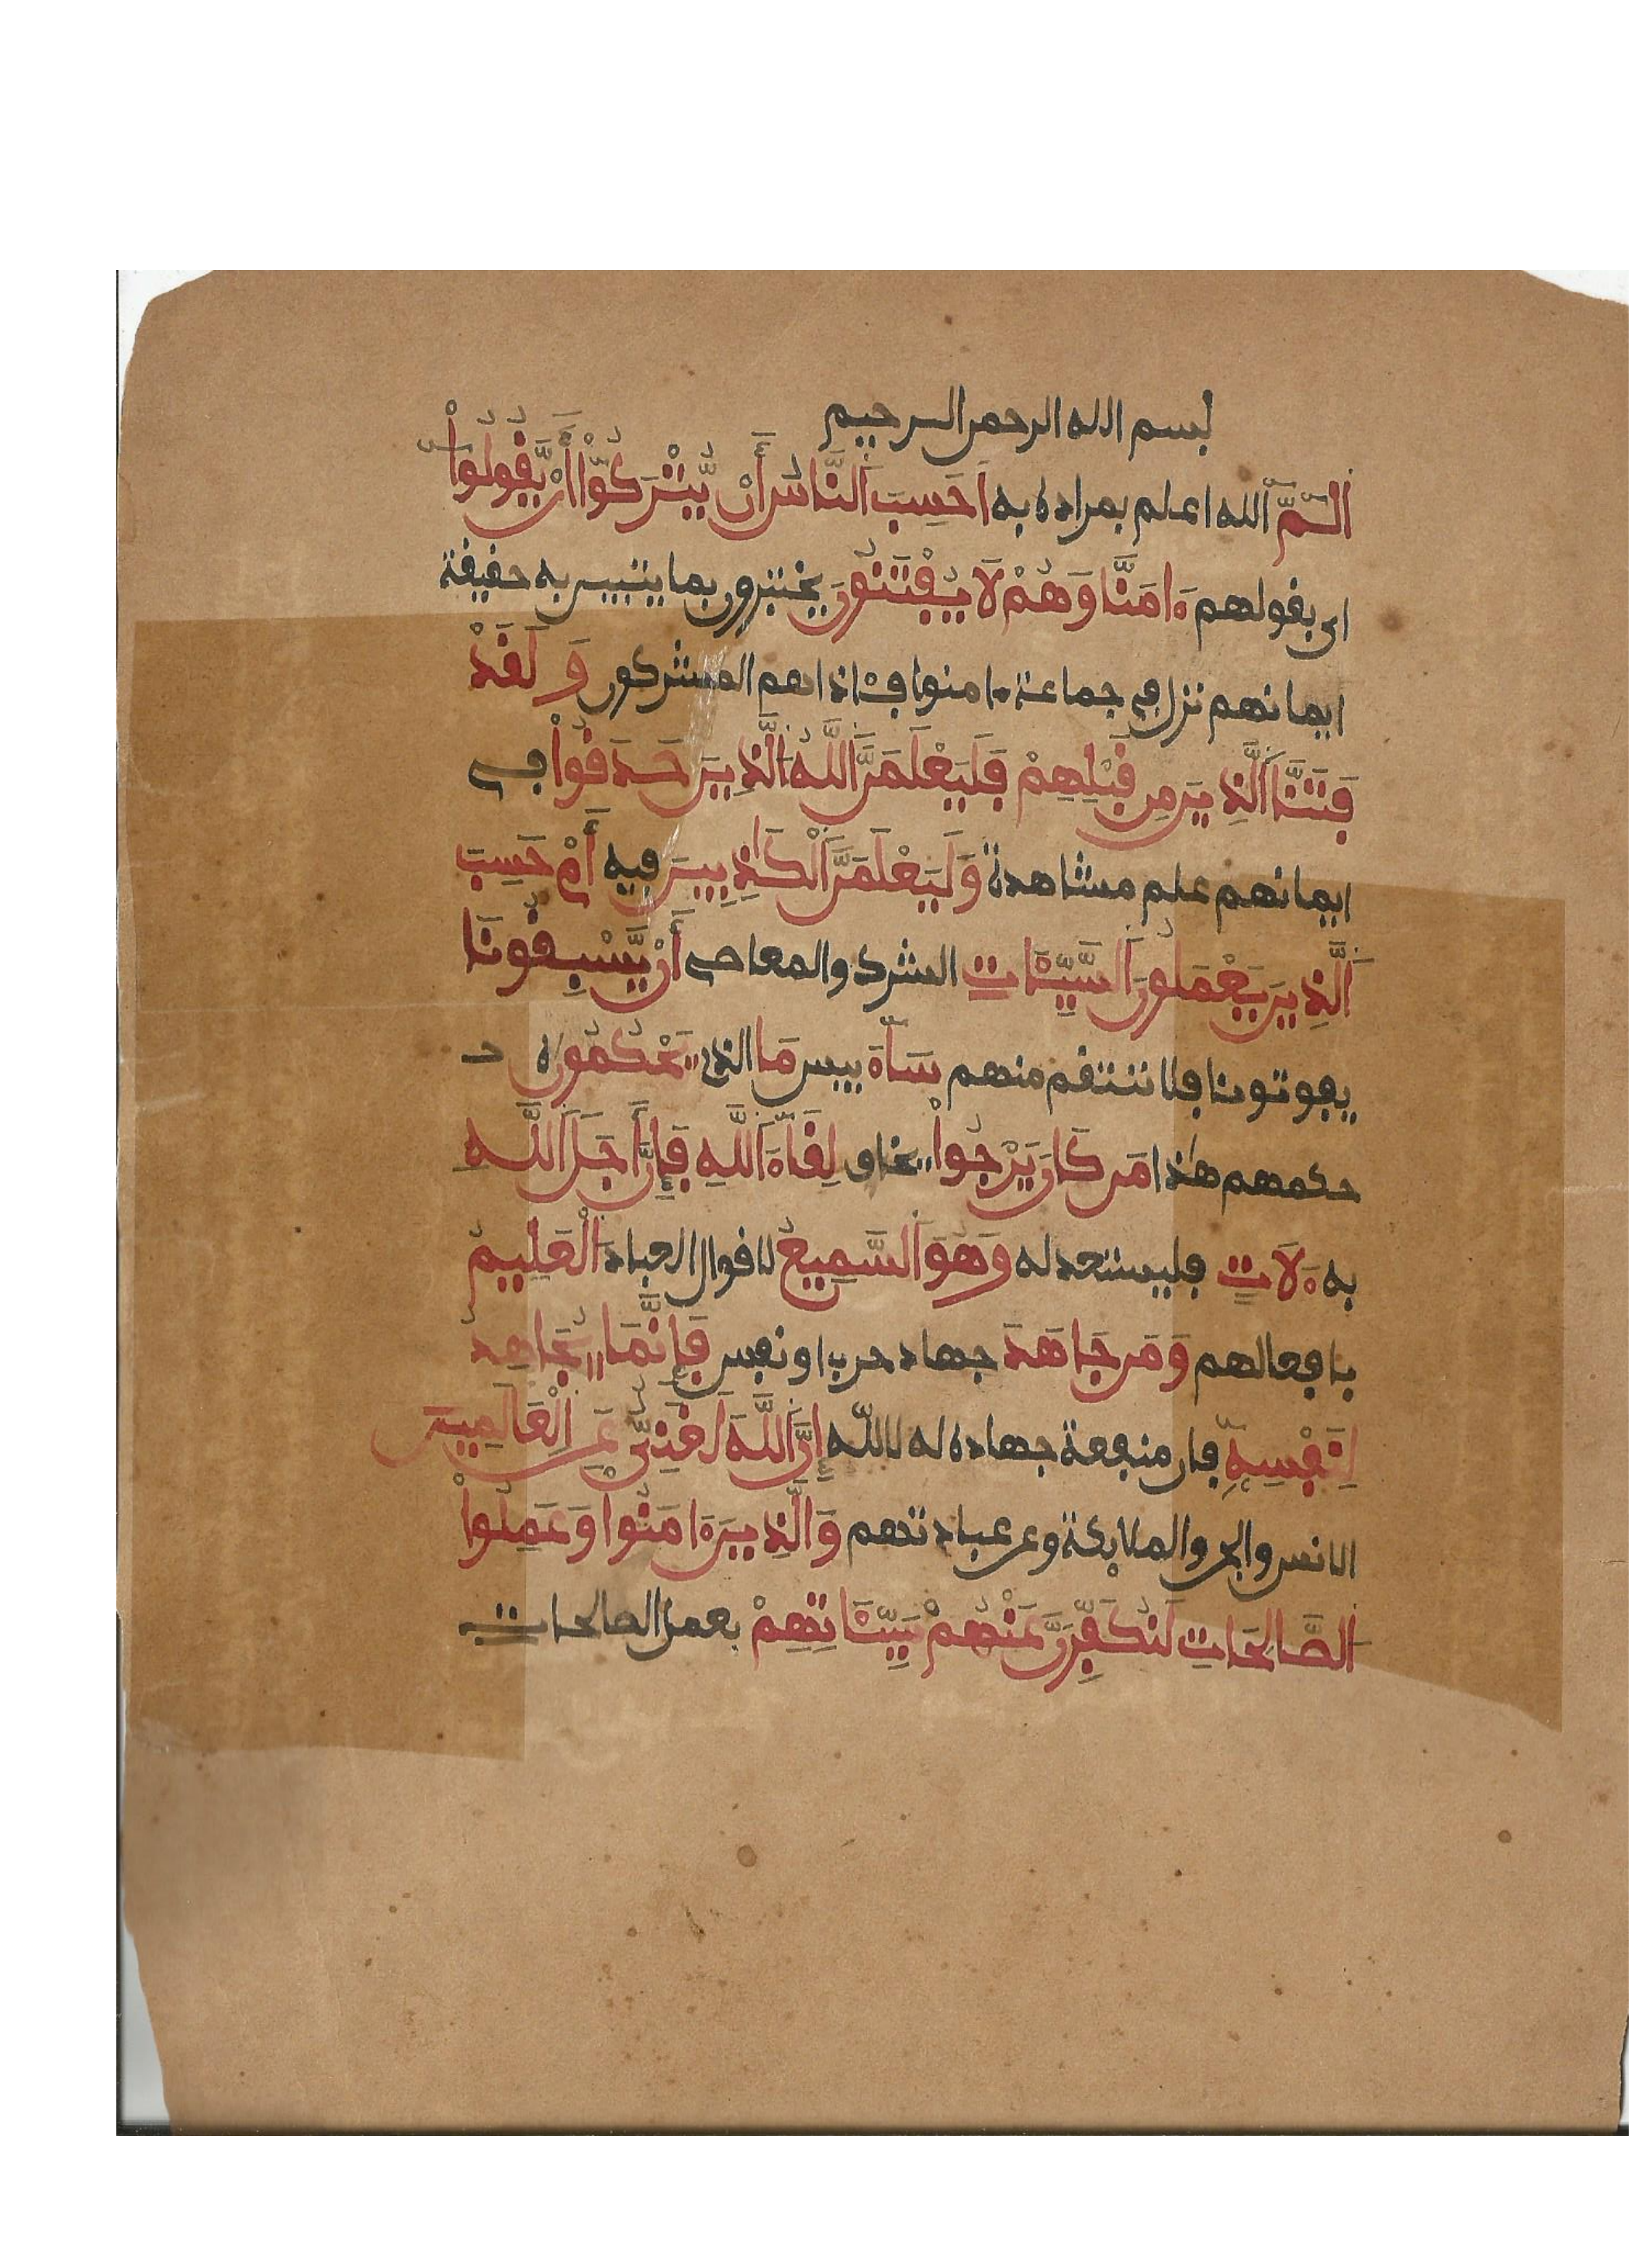 بسم الله الرحمن الرحيم
الٓمّٓ الله اعلم بمراده به اَحَسِبَ اَلنَّاسُ أَنْ يُّتْرَكُوٓاْ أَنْ يَّقُولُواْ
اى بقولهم ءَامَنَّا وَهُمْ لَا يُفْتَنُونَ يختبرون بما يتبين به حقيقة
ايمانهم نزل في جماعة ءامنوا فـاذاهم المشركون وَلَقَدْ
فَتَنَّا اَلَّذِينَ مِن قَبْلِهِمْ فَلَيَعْلَمَنَّ اَللَّهُ اَلَّذِينَ صَدَقُواْ في
ايمانهم علم مشاهدة وَلَيَعْلَمَنَّ اَلْكَٰذِبِينَ فيه أَمْ حَسِبَ
اَلَّذِينَ يَعْمَلُونَ اَلسَّيِّـَٔاتِ الشرك والمعاصى أَنْ يَّسْبِقُونَا
يفوتونا فلا ننتقم منهم سَآءَ بيس مَا الذى يَحْكُمُونَ ه
حكمهم هٰذا مَن كَانَ يَرْجُواْ يخاف لِقَآءَ اَللَّهِ فَإِنَّ أَجَلَ اَللَّهِ
به ءَلَاتٍ فليستعد له وَهُوَ اَلسَّمِيعُ لاقوال العباد اَلْعَلِيمُ
بافعالهم وَمَن جَاهَدَ جهاد حرب او نفس فَإِنَّمَا يُجَاهِدُ
لِنَفْسِهِۦٓ فان منفعة جهاده له لا لله إِنَّ اَللَّهَ لَغَنِيٌّ عَنِ اِلْعَالَمِينَ
الانس والجن والملايكة وعن عبادتهم وَالَّذِينَ ءَامَنُواْ وَعَمِلُواْ
اُلصَّالِحَاتِ لَنُكَفِّرَنَّ عَنْهُمْ سَيِّـَٔاتِهِمْ بعمل الصالحات